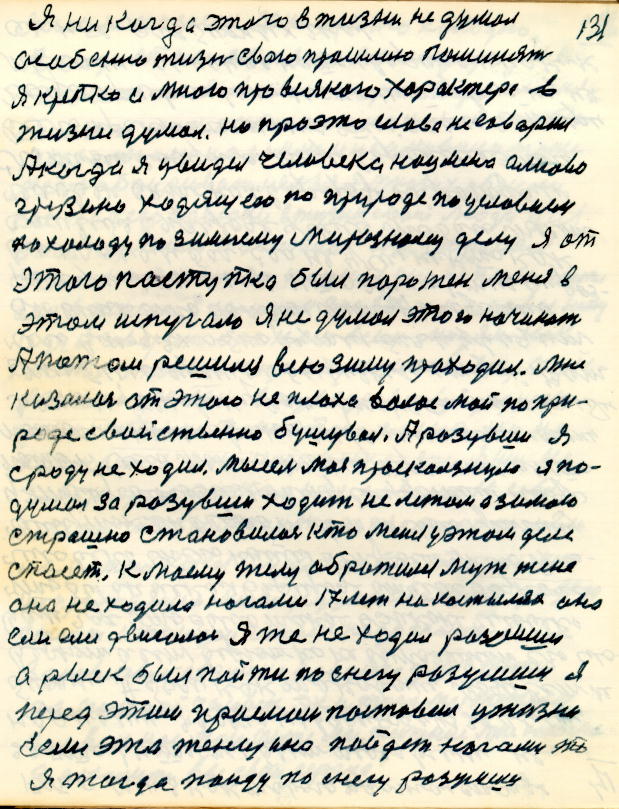 Я ни когда этого в жизни не думал 131
особенно жизн свого прошлою поминят
Я крепко и много про всякого характера в
жизни думал. но про это слова не говарил
А когда я увидел человека нацмена
грузина ходящего по природе по условием
по холоду по зимнему мирозному делу Я от
этого поступка был поражен меня в
этом испугало Я не думал этого начинат
А потом решился всю зиму проходил. мне
казалос от этого не плоха волос мой по при-
роде свойственно бушувал. А розувши Я
сроду не ходил. мысел моя проскользнула я по-
думал за розувши ходит не летом а зимою
страшно становилос кто меня у этом деле
спасет. К моему телу обратилис муж жена
она не ходила ногами 17 лет на костылях она
ели ели двигалас Я же не ходил розувши
а риск был пойти по снегу розувши Я
перед этим приемом поставил у жизни
если эта женщина пойдет ногами то
Я тогда пойду по снегу розувши